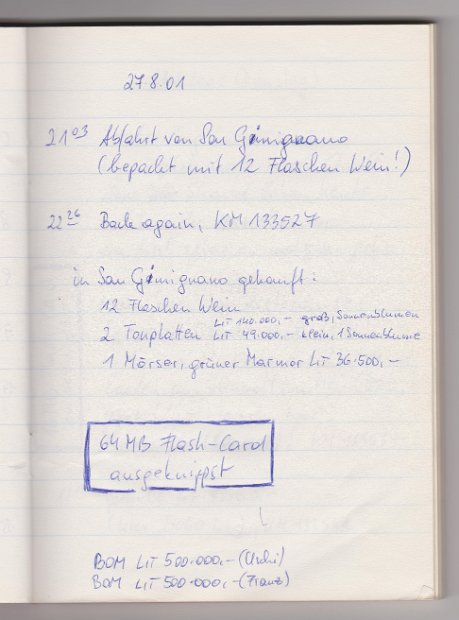 27.8.01
21 03 Abfahrt von San Gimignano
(bepackt mit 12 Flaschen Wein!)
22 26 Back again, KM 133527
in San Gimignano gekauft:
12 Flaschen Wein
2 Tonplatten LIT 140.000,- groß, Sonnenblumen
LIT 49.000,- klein, 1 Sonnenblume
1 Mörser, grüner Marmor LIT 36.500,-
64 MB Flash-Card
ausgeknippst
BOM LIT 500.000,- (Uschi)
BOM LIT 500.000,- (Franz)